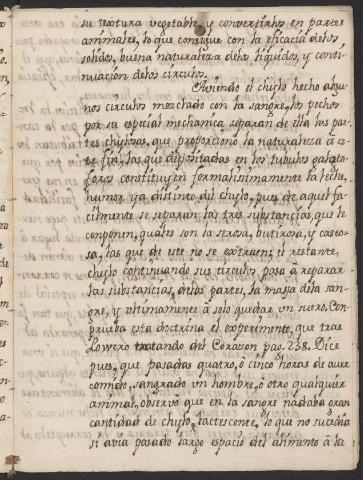 su testura vegetable, y convertirlos en partes
animales, lo que consigue con la eficacia delos
solidos, buena naturaleza delos liquidos, y conti-
nuacion delos circulos.
Aviendo el chylo hecho algu-
nos circulos mezclado con la sangre, los pechos
por su especial mechanica separan de ella las par-
tes chylosas, que proporcionò la naturaleza à es-
te fin, las que depositadas en los tubulos galacto-
foros constituyen formalissimamente la leche,
humor ya distinto del chylo, pues de aquel fa-
cilmente se separan las tres substancias, que le
componen, quales son la serosa, butirosa, y caseo-
sa, las que de este no se extraen; el restante
chylo continuando sus circulos pasa à reparar
las substancias, de las partes, la massa dela san-
gre, y ultimamente à solo quedar un suero. Com-
prueba esta doctrina el experimento, que trae
Lovvero tratando del Corazon pag. 238. Dice
pues, que pasadas quatro, ò cinco horas de aver
comido, sangrado un hombre, ò otro qualquier
animal, observò que en la sangre nadaba gran
cantidad de chylo lactescente, lo que no sucedia
si avia pasado largo espacio del alimento à la